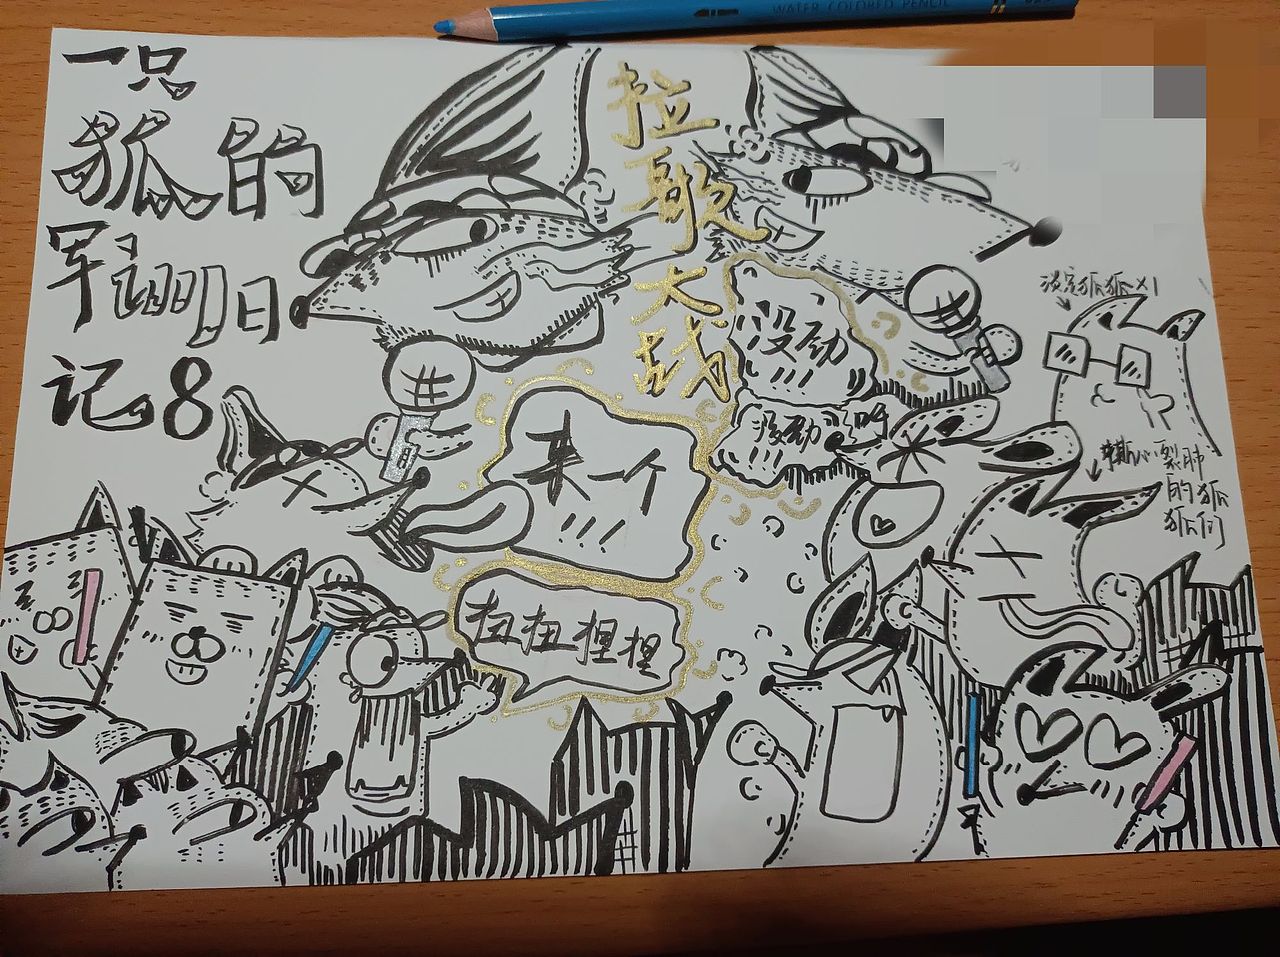 WATER COLORED PENCIL
一只
狐的
军训日
记。8
拉
歌
大
战
没动
!!!
没动静呀
来一个
!!!
扭扭捏捏
淡定狐狐×1
撕心裂肺
的狐
狐们